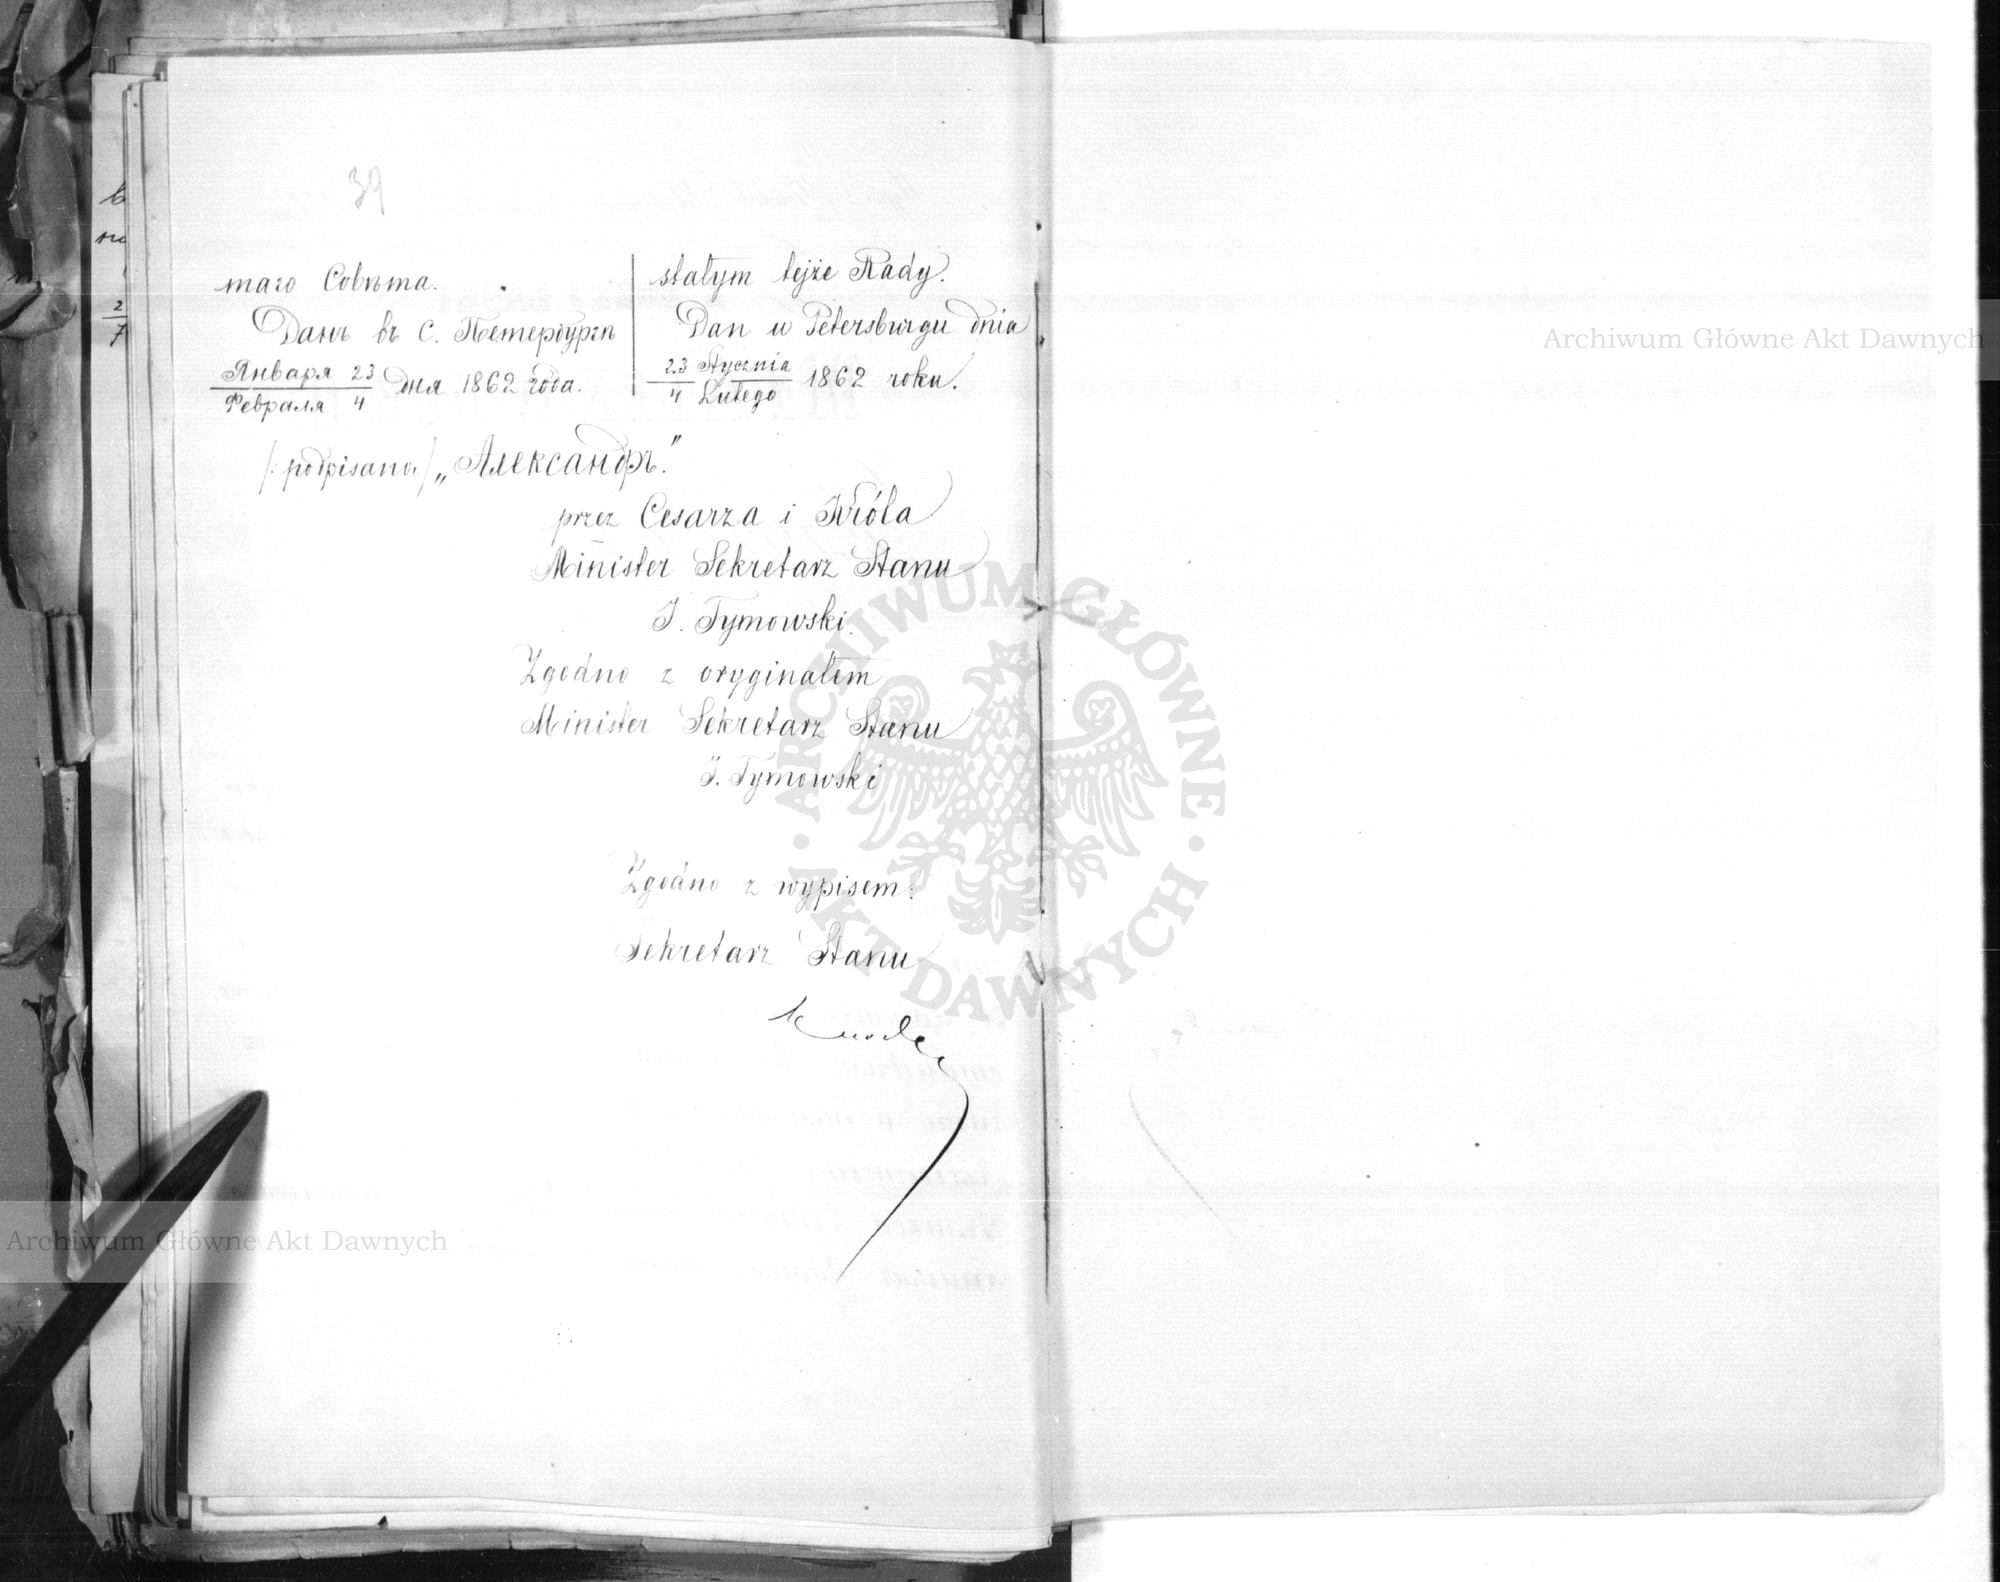 39
таго Совѣта.
Данъ въ С. Петербургѣ
Января 23
Февраля 4
дня 1862 года.
stałym tejże Rady.
Dan w Petersburgu dnia
23 Stycznia
4 Lutego
1862 roku.
/: podpisano :/ „Александръ."
przez Cesarza i Króla
Minister Sekretarz Stanu
J. Tymowski.
Zgodno z oryginałem
Minister Sekretarz Stanu
J. Tymowski
Zgodno z wypisem:
Sekretarz Stanu
ARCHIWUM GŁÓWNE
AKT DAWNYCH
Archiwum Główne Akt Dawnych
Archiwum Główne Akt Dawnych